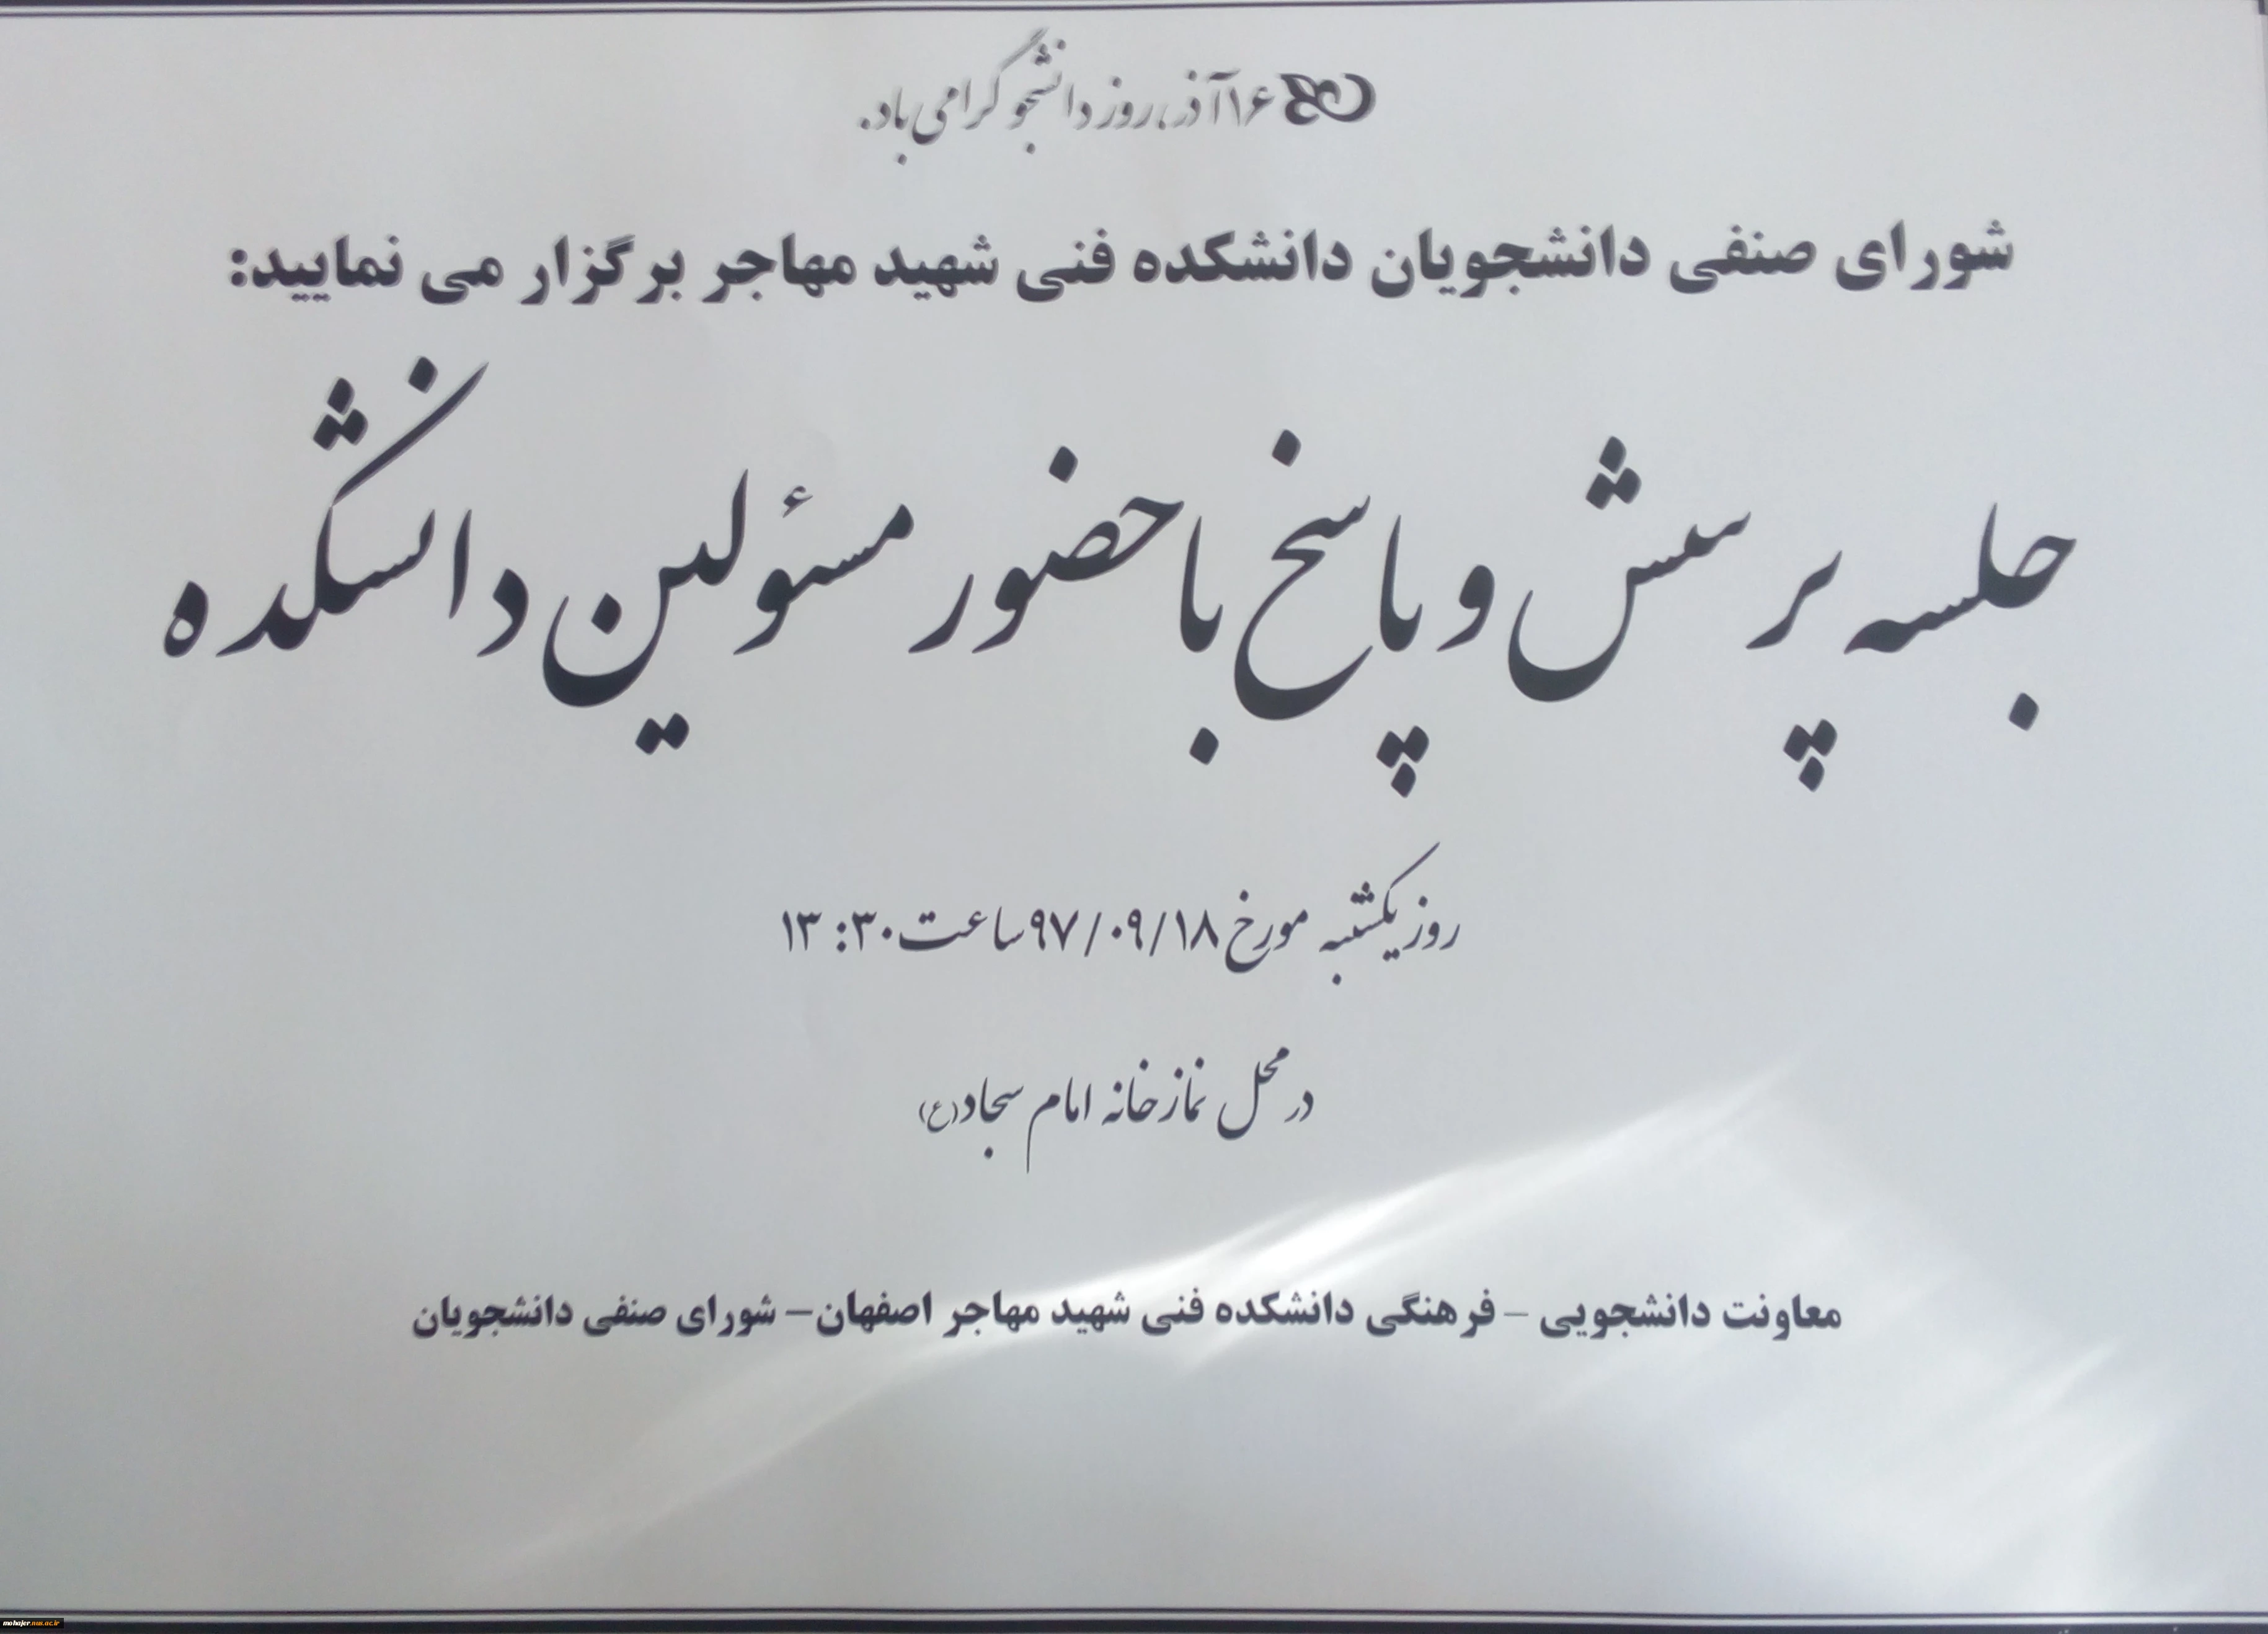 ۱۶ آذر، روز دانشجو گرامی باد.
شورای صنفی دانشجویان دانشکده فنی شهید مهاجر برگزار می نمایید:
جلسه پرسش و پاسخ با حضور مسئولین دانشکده
روز یکشنبه مورخ ۹۷/۰۹/۱۸ ساعت ۱۳:۳۰
در محل نمازخانه امام سجاد(ع)
معاونت دانشجویی – فرهنگی دانشکده فنی شهید مهاجر اصفهان – شورای صنفی دانشجویان
mohajer.nus.ac.ir